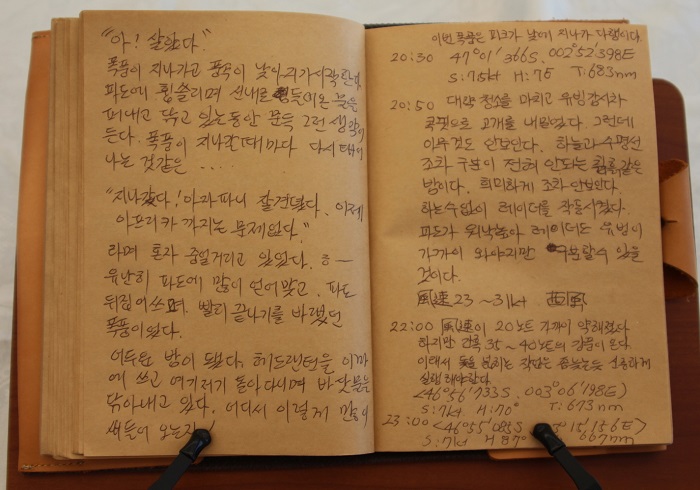 "아! 살았다."
폭풍이 지나가고 풍속이 낮아지기 시작한다.
파도에 휩쓸리며 선내로 들어온 물을
퍼내고 닦고 있는동안 문득 그런 생각이
든다. 폭풍이 지나갈때마다 다시 태어
나는 것같은 ....
"지나갔다! 아라파니 잘견뎠다. 이제
아프리카 까지는 문제없다."
라며 혼자 중얼거리고 있었다. 휴一
유난히 파도에 많이 얻어맞고. 파도
뒤집어쓰며, 빨리 끝나기를 바랬던
폭풍이었다.
어두운 밤이 됐다. 헤드랜턴을 이마
에 쓰고 여기저기 돌아다니며 바닷물을
닦아내고 있다. 어디서 이렇게 많이
새들어 오는지!
이번 폭풍은 피크가 낮에 지나가 다행이다.
20:30 47°01'366S. 002°52'398E
S:7.5kt H:75 T:683nm
20:50 대략 청소를 마치고 유빙감시차
콕핏으로 고개를 내밀었다. 그런데
아무것도 안보인다. 하늘과 수평선
조차 구분이 전혀 안되는 칠흑같은
밤이다. 희미하게 조차 안보인다.
하는수없이 레이더를 작동시켰다.
파도가 워낙높아 레이더도 유빙이
가까이 와야지만 구분할수 있을
것이다.
風速 23 ~ 31kt 西風
22:00 風速이 20노트 가까이 약해졌다
하지만 간혹 35 ~ 40노트의 강풍이 온다
이래서 돛을 작업은 신중하게
실행해야한다.
<46°56'733S. 003°06'198E>
S:7kt. H:70° T:673nm
23:00 <46°55'085S 15'156E>
S:7kt H:87° 667nm